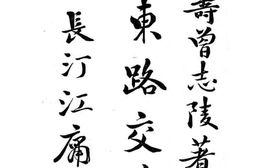 壽曾志陵著
東路交
長汀江庸